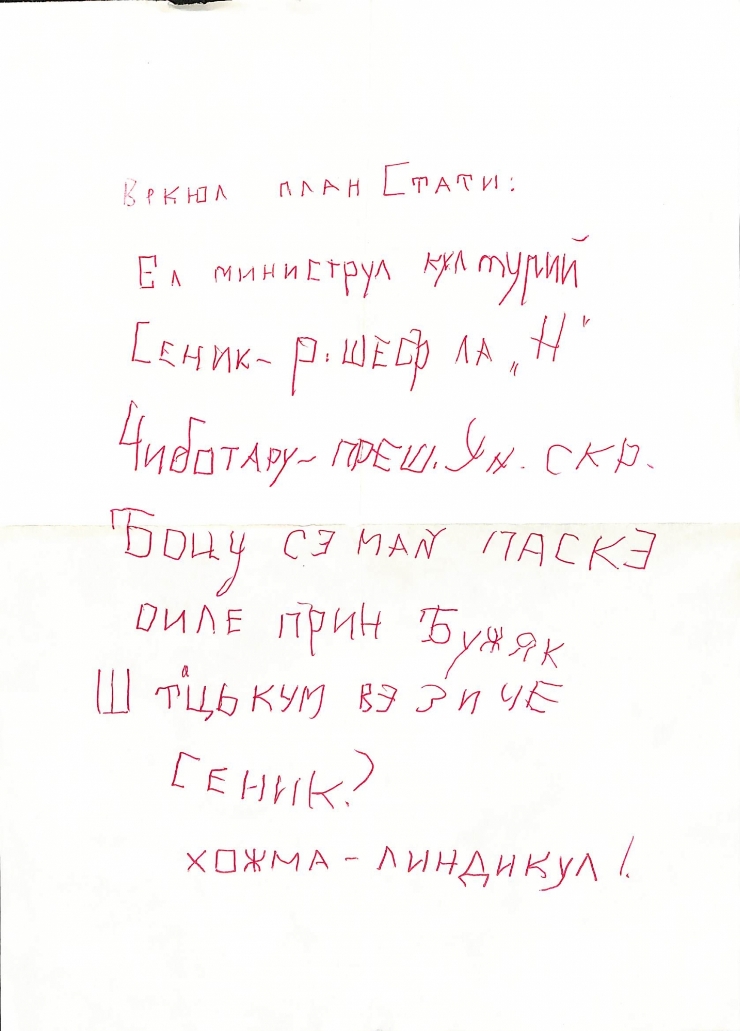 Вркюл план Стати:
Ел министрул културий
Сеник – р. шеф ла „Н"
Чиботару – преш. Ун. скр.
Боцу сэ май паскэ
оиле прин Бужяк
Сеник?
хожма – линдикул!